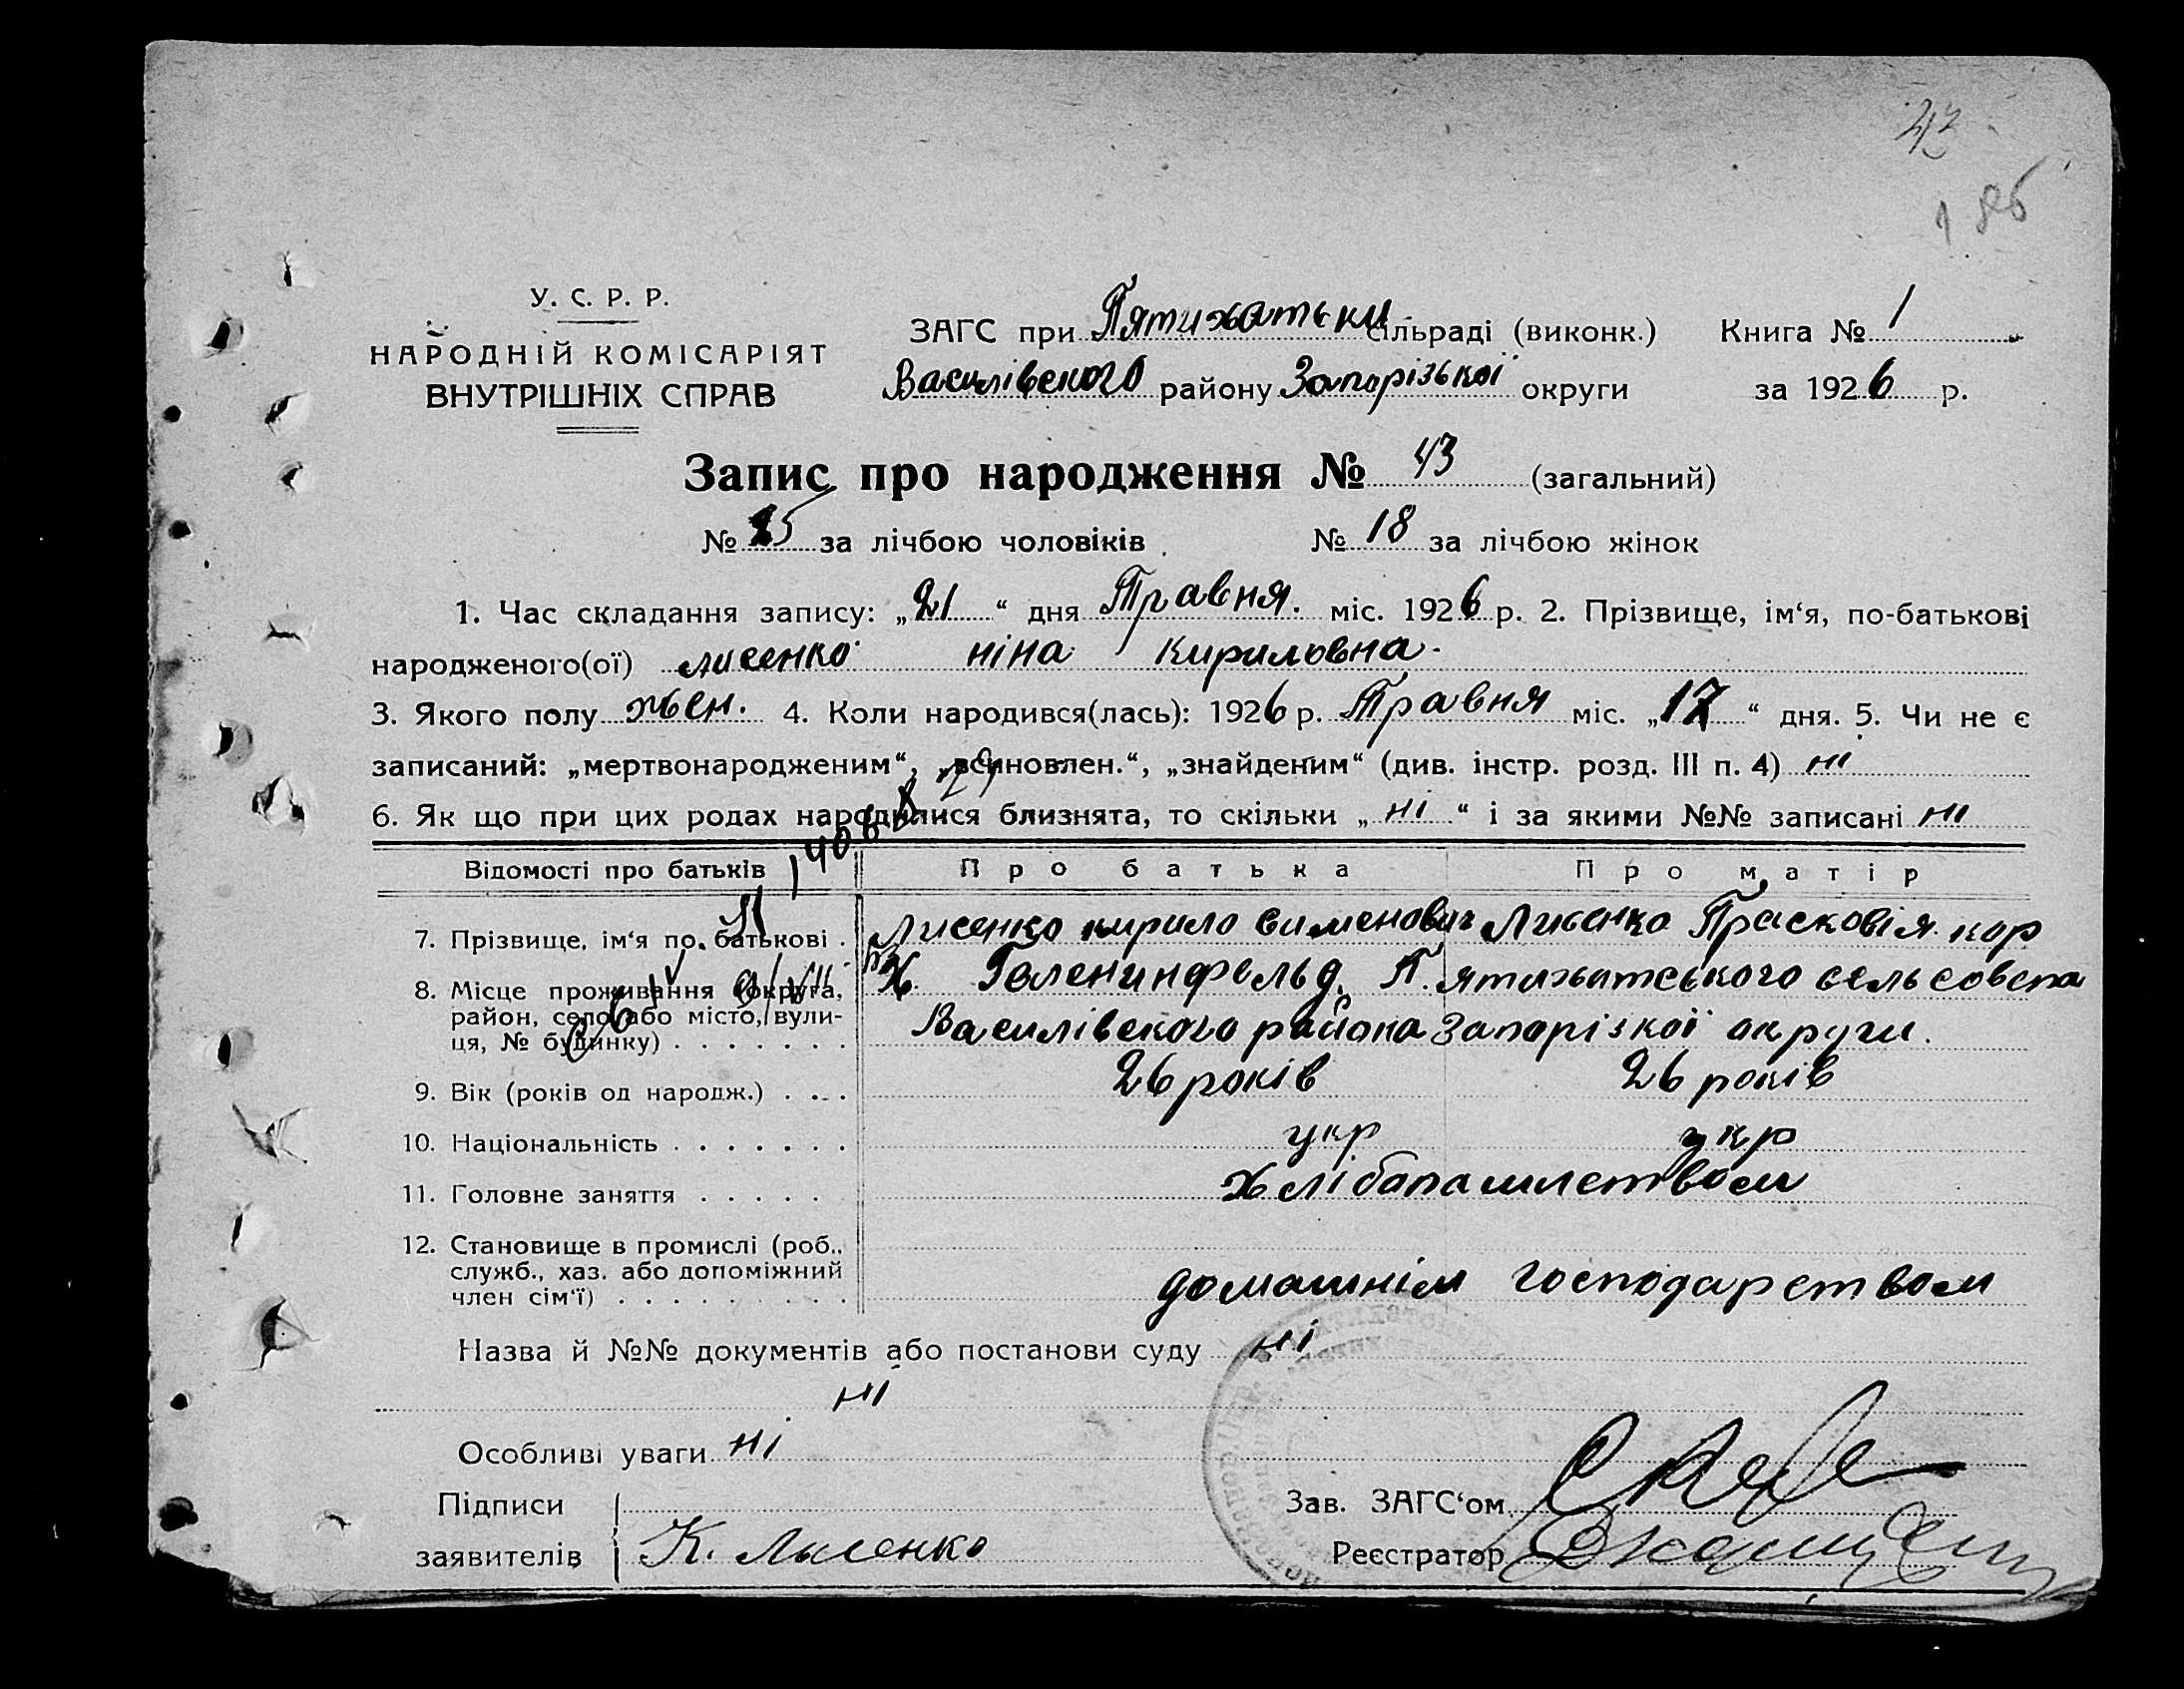 42
186
У. С. Р. Р.
НАРОДНІЙ КОМІСАРІЯТ
ВНУТРІШНІХ СПРАВ
ЗАГС при Пятихатьки сільраді (виконк.) Книга № 1
Василівского району Запорізької округи за 1926 р.
Запис про народження № 43 (загальний)
№ 25 за лічбою чоловіків № 18 за лічбою жінок
1. Час складання запису: „21“ дня Травня. міс. 1926 р. 2. Прізвище, ім‘я, по-батькові
народженого(ої) лисенко ніна Кириловна.
3. Якого полу жен. 4. Коли народився(лась): 1926 р. Травня міс. „17“ дня. 5. Чи не є
записаний: „мертвонародженим“, „всиновлен.“, „знайденим“ (див. інстр. розд. III п. 4) ні
6. Як що при цих родах народилися близнята, то скільки „ні“ і за якими №№ записані ні
Відомості про батьків Про батька Про матір
7. Прізвище, ім‘я по батькові . Лисенко кирило Сименович Лисенко Прасковія кор
8. Місце проживання (округа, район, село або місто, вулиця, № будинку) . . . . . . . Х. Геленинфельд. П.ятихатського сельсовета
Василівского района Запорізкої округи.
9. Вік (років од народж.) . . . 26 років 26 років
10. Національність . . . . . . . укр укр
11. Головне заняття . . . . . Хлібапашлетвом
12. Становище в промислі (роб., служб., хаз. або допоміжний член сім‘ї) . . . . . . . . . домашнім господарством
Назва й №№ документів або постанови суду ні
ні
Особливі уваги ні
Підписи
заявителів К. Лысенко
Зав. ЗАГС‘ом
Реєстратор